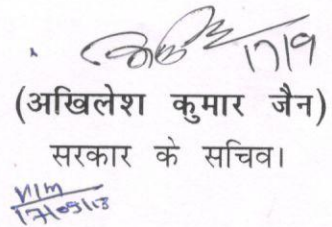 17/9
(अखिलेश कुमार जैन)
सरकार के सचिव।
17/09/13